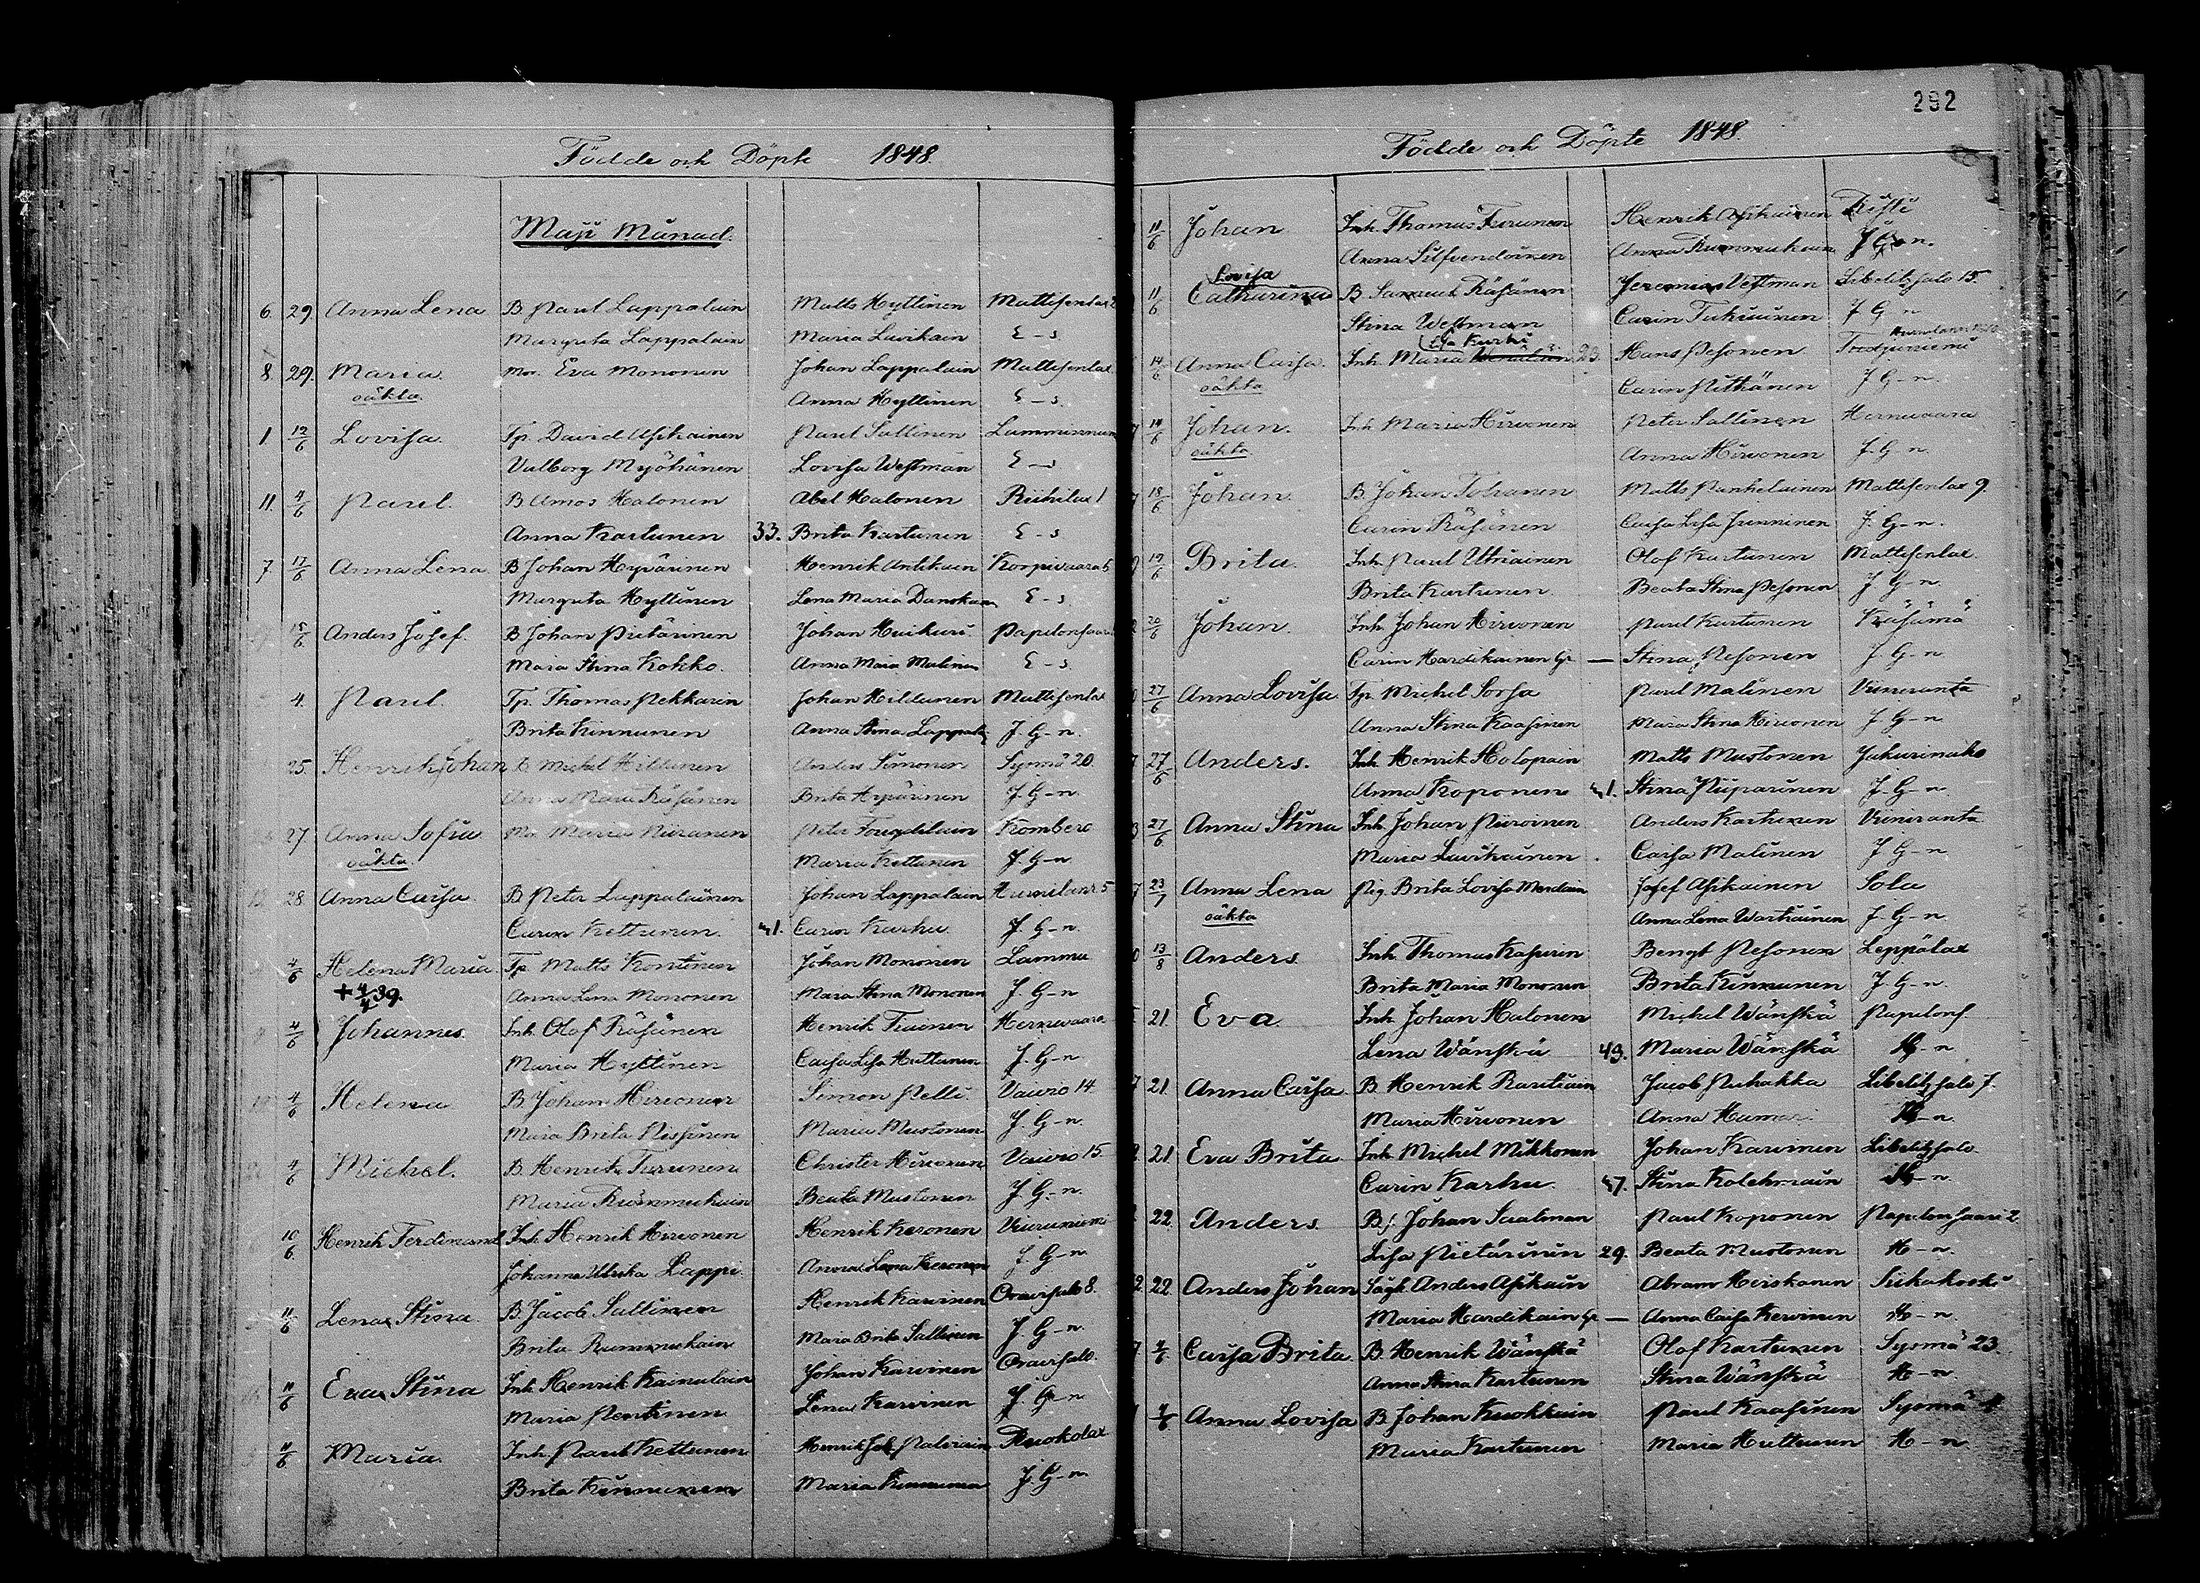 292
Födde och Döpte 1848.
Maji Månad.
6. 29. Anna Lena B. Paul Lappalain Matts Hyttinen Mattisenlax
Margreta Lappalain Maria Luikain E-s
8. 29. Maria Mor. Eva Mononen Johan Lappalain Mattisenlax
oäkta. Anna Hyttinen E-s.
1 12/6 Lovisa. Tp. David Asikainen Paul Sallinen
Valborg Myöhänen Lovisa Westman E-s
11. 4/6 Paul. B Amos Halonen Abel Halonen Ruhilax 1
Anna Kartunen 33. Brita Kartunen E-s
7. 12/6 Anna Lena B Johan Hypärinen Henrik Antikain Korpivaara 6
Margreta Hyttinen Lena Maria Danska E-s
15/6 Anders Josef. B Johan Pietärinen Johan Huikuri
Maria Stina Kokko. Anna Maria Malinen E-s
4. Paul. Tp. Thomas Pekkarin Johan Hildunen Mattisenlax
Brita Kinnunen Anna Stina Lappal. J. G-n.
25. Henrik Johan B Michel Hiltunen Anders Simonen Sysmä 20.
Anna Maria Räsänen Brita Hypärinen J. G-n
27. Anna Sofia Mor Maria Piiranen Peter Fougdilain Kombero
oäkta. Maria Kettunen J. G-n
28. Anna Caisa. B Peter Lappalainen Johan Lappalain 5
Carin Kettunen. 41. Carin Karhu J. G-n.
4/6 Helena Maria Tp. Matts Kontinen Johan Mononen Lamma
+ 4/4 39. Anna Lena Mononen Maria Stina Mononen J. G-n
4/6 Johannes. Inh. Olof Räsänen Henrik Hernevaara
Maria Hyttinen Caisa Lisa Huttunen J. G-n
4/6 Helena B Johan Hirvonen Simon Pelli Vaivio 14
Maria Brita Nissinen Maria Mustonen J. G-n.
4/6 Michel. B. Henrik Turunen Christer Hirvonen Vaivio 15
Maria Rummukain Beata Mustonen J. G-n
10/6 Henrik Ferdinand Inh Henrik Hirvonen Henrik Keronen
Johanna Ulrika Lappi Anna Lena Keronen J. G-n
11/6 Lena Stina. B. Jacob Sallinen Henrik Karvinen Oravisalo 8.
Brita Rummukain Maria Brita Sallinen J. G-n.
11/6 Eva Stina Inh Henrik Kainulain Johan Karvinen Oravisalo.
Maria Pentinen Lena Karvinen J. G-n
11/6 Maria. Inh. Paul Kettunen Henrik Joh. Palviain Ruokolax
Brita Kinnunen Maria Kinnunen J. G-n
Födde och Döpte 1848.
11/6 Johan Inh. Thomas Turunen Henrik Asikainen
Anna Silfvendoinen Anna Rummukain J G-n.
Lovisa
11/6 Catharina B. Samuel Räsänen Jeremias Westman Libelitzsalo 15.
Stina Westman Carin Tukiainen J G-n
Eva Kurki
14/6 Anna Caisa. Inh. Maria 23. Hans Pesonen
oäkta Carin Pitkänen J. G-n.
14/6 Johan. Inh. Maria Hirvonen Peter Sallinen Hernevaara
oäkta. Anna Hirvonen J. G-n.
18/6 Johan. B. Johan Tolvanen Matts Parkelainen Mattisenlax 9.
Carin Räsänen Caisa Lisa Junninen J. G-n.
19/6 Brita. Inh. Paul Utriainen Olof Kartunen Mattisenlax
Brita Kartunen Beata Stina Pesonen J. G-n.
20/6 Johan. Inh. Johan Hirvonen Paul Kartunen Kräsämä
Carin Hardikainen Gr — Stina Pesonen J. G-n.
27/6 Anna Lovisa Tp. Michel Sorsa Paul Malinen Viiniranta
Anna Stina Kaasinen Maria Stina Hirvonen J. G-n.
27/6 Anders. Inh. Henrik Holopain Matts Mustonen Jakurinaho
Anna Koponen 41. Stina Piiparinen J. G-n.
27/6 Anna Stina Inh. Johan Piiroinen Anders Kartunen Viiniranta
Maria Luikainen. Caisa Malinen J G-n.
23/7 Anna Lena Pig. Brita Lovisa Josef Asikainen Sola
oäkta Anna Lena Wartiainen J. G-n.
13/8 Anders Inh. Thomas Kasurin Bengt Pesonen Leppälax
Brita Maria Mononen Brita Kinnunen J. G-n.
21. Eva Inh. Johan Halonen Michel Wänskä Papelons
Lena Wänskä 43. Maria Wänskä H-n
21. Anna Caisa. B. Henrik Rautiain Jacob Puhakka Libelitzsalo 7.
Maria Hirvonen Anna Humari H-n.
21. Eva Brita Inh. Michel Mikkonen Johan Karvinen Libelitzsalo.
Carin Karhu. 47. Stina Kolehmain H-n.
22. Anders Bf. Johan Saalman Paul Koponen Papelonsaari 2
Lisa Pietärinen 29. Beata Mustonen H-n.
22. Anders Johan Sågk Anders Asikain Abram Heiskanen Siikakoski
Maria Hardikain Gr — Anna Caisa Kervinen H-n.
4/6 Caisa Brita. B. Henrik Wänskä Olof Kartunen Sysmä 23.
Anna Stina Kartunen Stina Wänskä H-n.
4/6 Anna Lovisa B Johan Kuokkain Paul Kaasinen Sysmä
Maria Kartunen Maria Huttunen H-n.